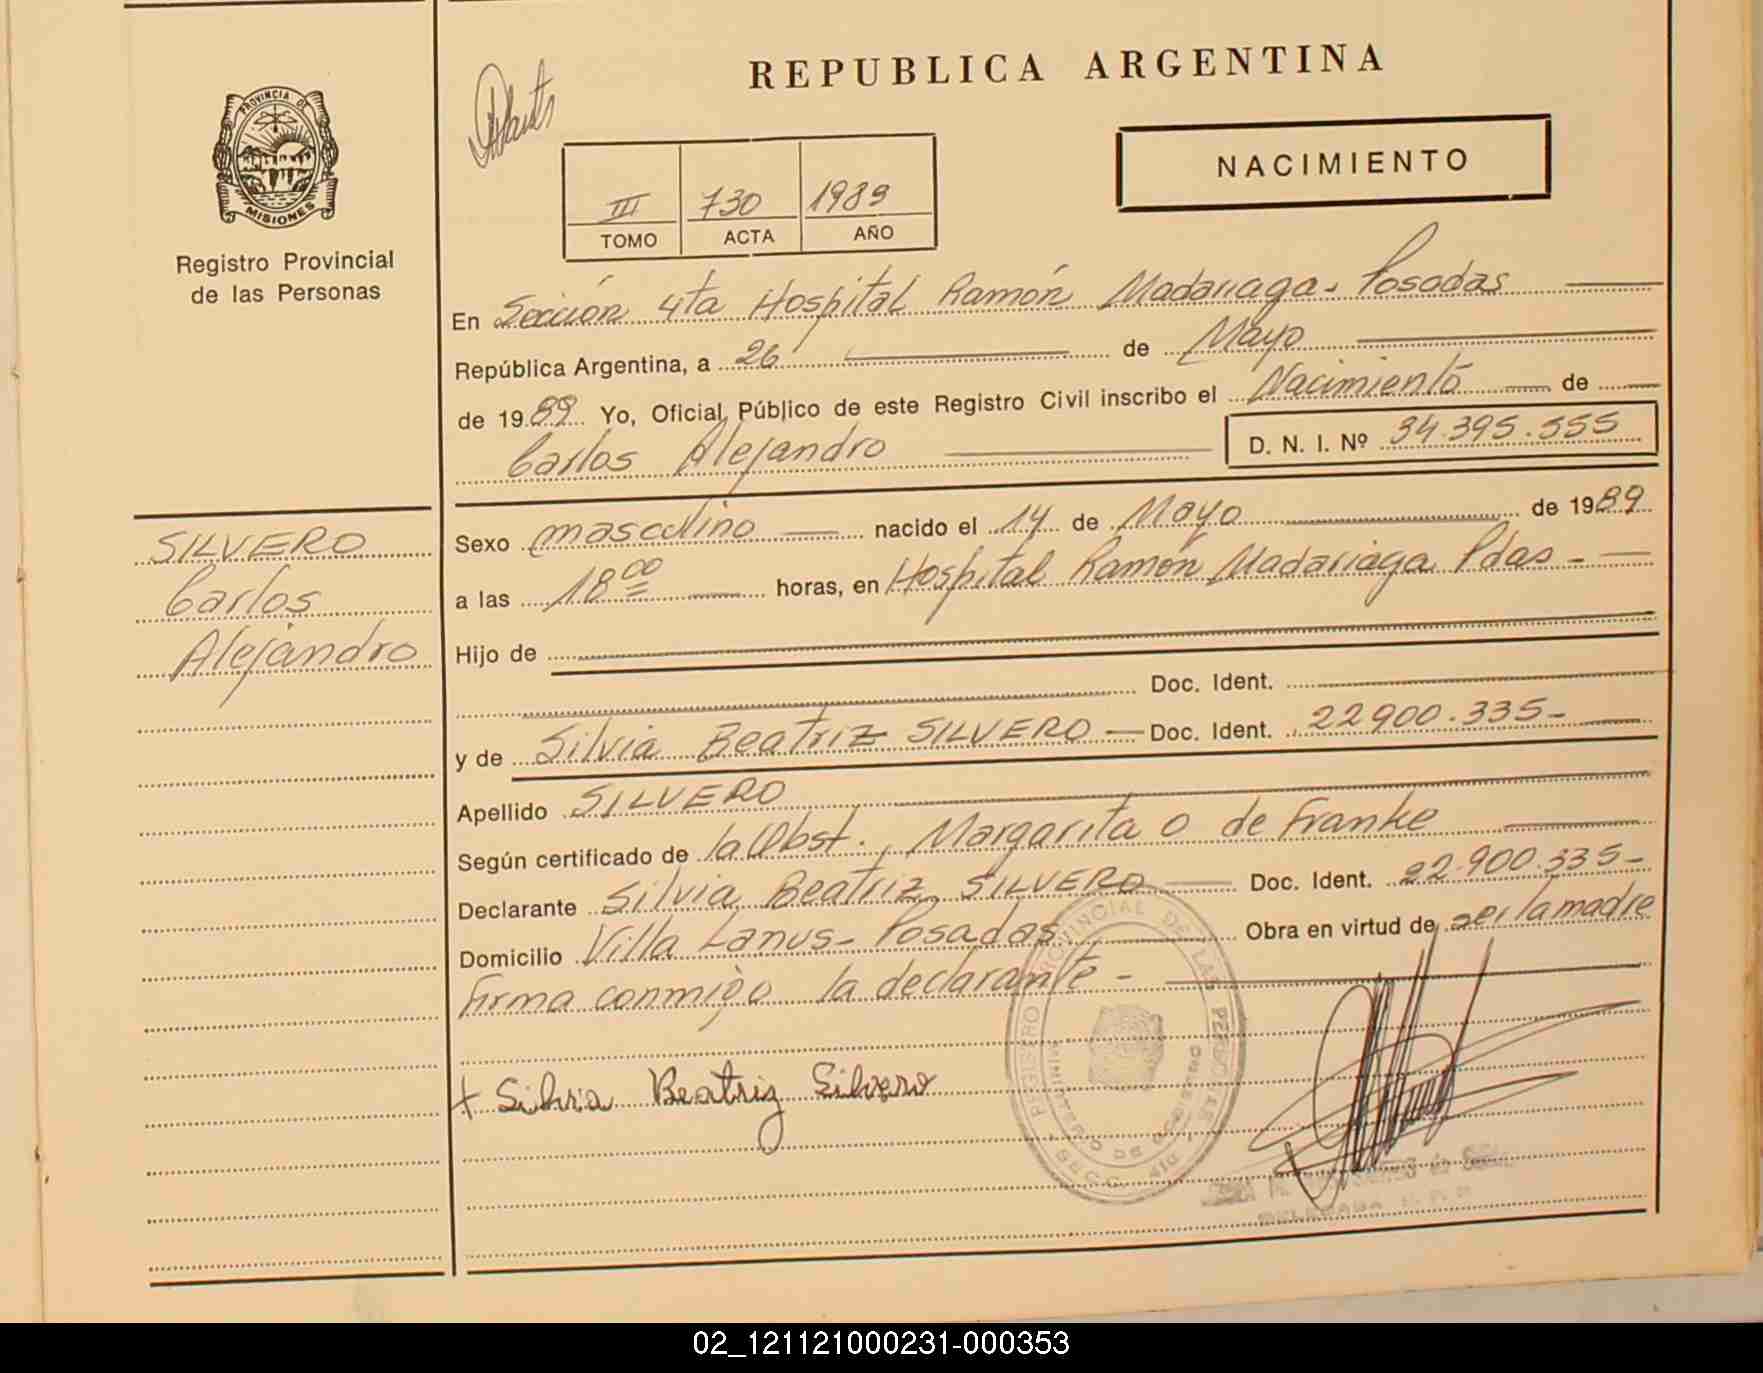 REPUBLICA ARGENTINA
PROVINCIA DE
MISIONES
Registro Provincial
de las Personas
III 730 1989
TOMO ACTA AÑO
NACIMIENTO
En Sección 4ta Hospital Ramón Madariaga - Posadas
República Argentina, a 26 de Mayo
de 1989 Yo, Oficial Público de este Registro Civil inscribo el Nacimiento de
Carlos Alejandro D. N. I. Nº 34.395.555
SILVERO
Carlos
Alejandro
Sexo masculino nacido el 14 de Mayo de 1989
a las 18 00 horas, en Hospital Ramón Madariaga Pdas -
Hijo de
Doc. Ident.
y de Silvia Beatriz SILVERO Doc. Ident. 22900.335-
Apellido SILVERO
Según certificado de la Obst. Margarita O de Franke
Declarante Silvia Beatriz SILVERO Doc. Ident. 22.900.335-
Domicilio Villa Lanus - Posadas Obra en virtud de ser la madre
Firma conmigo la declarante -
+ Silvia Beatriz Silvero
REGISTRO PROVINCIAL DE LAS PERSONAS
MINISTERIO DE GOBIERNO
SECC. 4ta
DELEGADA
02_121121000231-000353